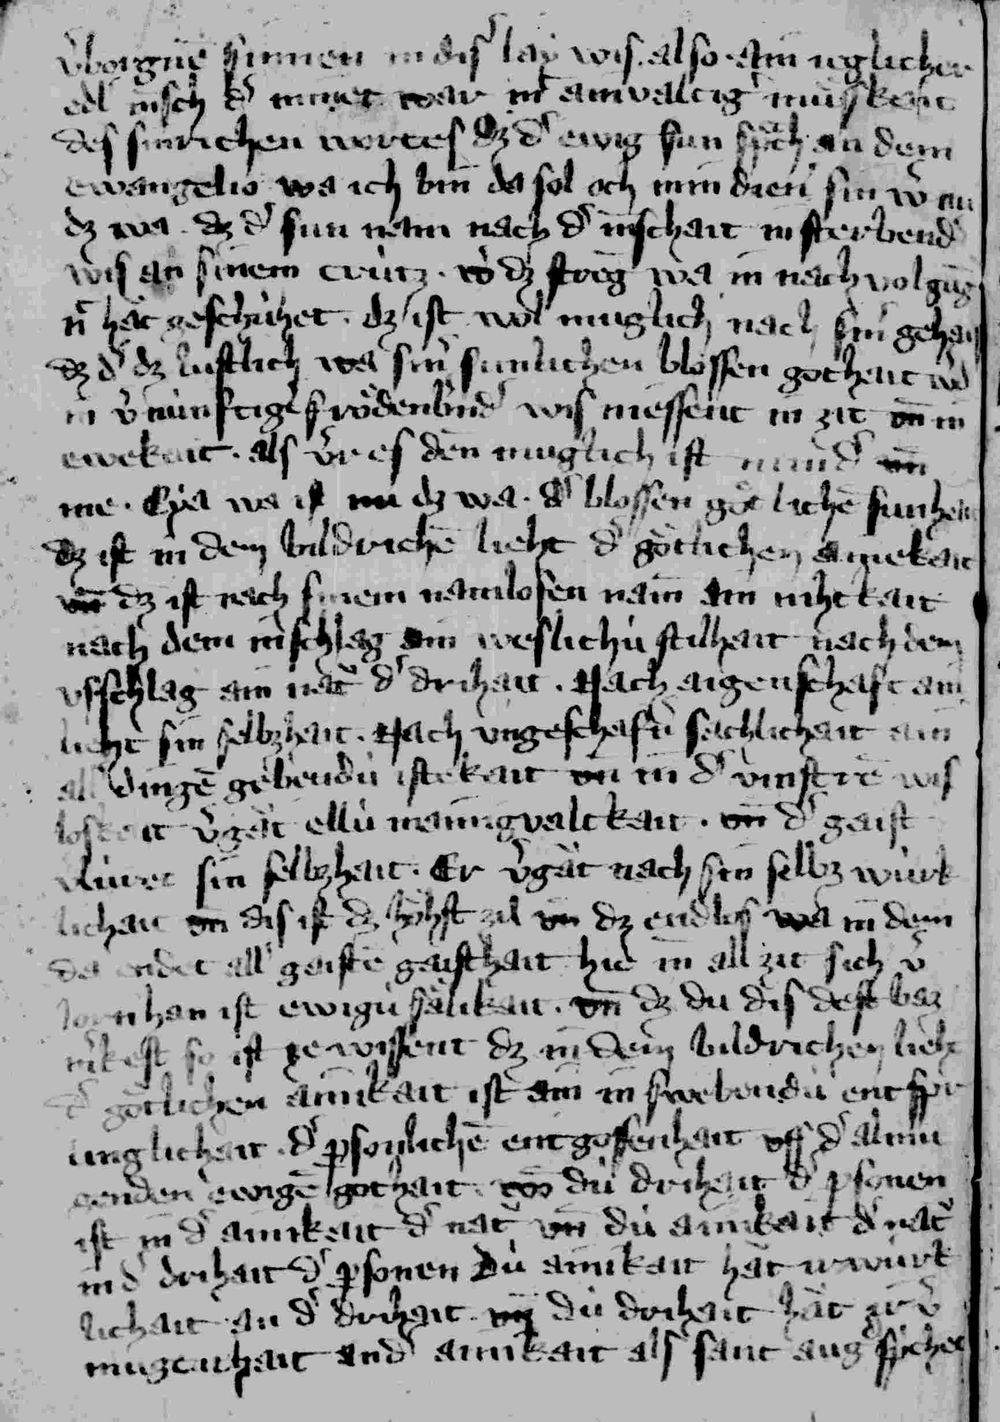 v̾borgnē sinnen in dis̾ lay wis. also. Ain ieglicher
edl̾ m̄sch d̾ nimet war in̄ ainvaltig̾ müsskait
des sinrichen wortes dz d̾ ewig sun sp̾ch an dem
ewangelio wa ich bin da sol och min dien̾ sin w̾ an
dz wa. dz d̾ sun nam nach d̾ m̄schait in sterbend̾
wis an sinem crütz. w̾ dz streg̾ wa in nachvolgūg
n̄ hat geschühet. dz ist wol muglich nach sin̾ gehais
dz d̾ dz lustlich wa sin̾ sunlichen blossen gothait w̾d
in v̾nünftig̾ frödenb̾nd̾ wis niessent in zit vn̄ in
ewekait. als v̾r es den muglich ist mind̾ vn̄
me. Eya wa ist nu dz wa. d̾ blossen götlichē sunheit
dz ist in dem bildrichē lieht d̾ götlichen ainekait
vn̄ dz ist nach sinem namlosen nam̄ ain nihtkait
nach dem inschlag ain weslichü stilhait nach dem
vsschlag ain nat̾ d̾ drihait. Nach aigenschaft ain
lieht sin selbzhait. Nach ungeschafn̾ sachlichait ain
all̾ dingē gebendü istekait vn̄ in d̾ vinst̾rē wis
loskeit v̾gat ellü manigvaltkait. vn̄ d̾ gaist
vlüret sin selbzhait. Er v̾gat nach sin selbz würk
lichait vn̄ dis ist dz höhst zil vn̄ dz endlos wa in dem
da endet all̾ gaistē gaisthait hie in all zit sich v̾
lorn han ist ewigü sälikait. vn̄ dz du dis dest baz
m̾kest so ist ze wissent dz in dem bildrichen lieht
d̾ götlichen ainikait ist ain in swebendü entspr
inglichait. d̾ p̱sonlichē entgossenhait vss d̾ almu
genden ewigē gothait. wō dü drihait d̾ p̱sonen
ist in d̾ ainikait d̾ nat̾ vn̄ dü ainikait d̾ nat̾
in d̾ drihait d̾ p̱sonen Dü ainikait hat ir würk
lichait an d̾ drihait. vn̄ dü drihait hat ir v̾
mugenhait an d̾ ainikait als sant aug̾ sp̾chet